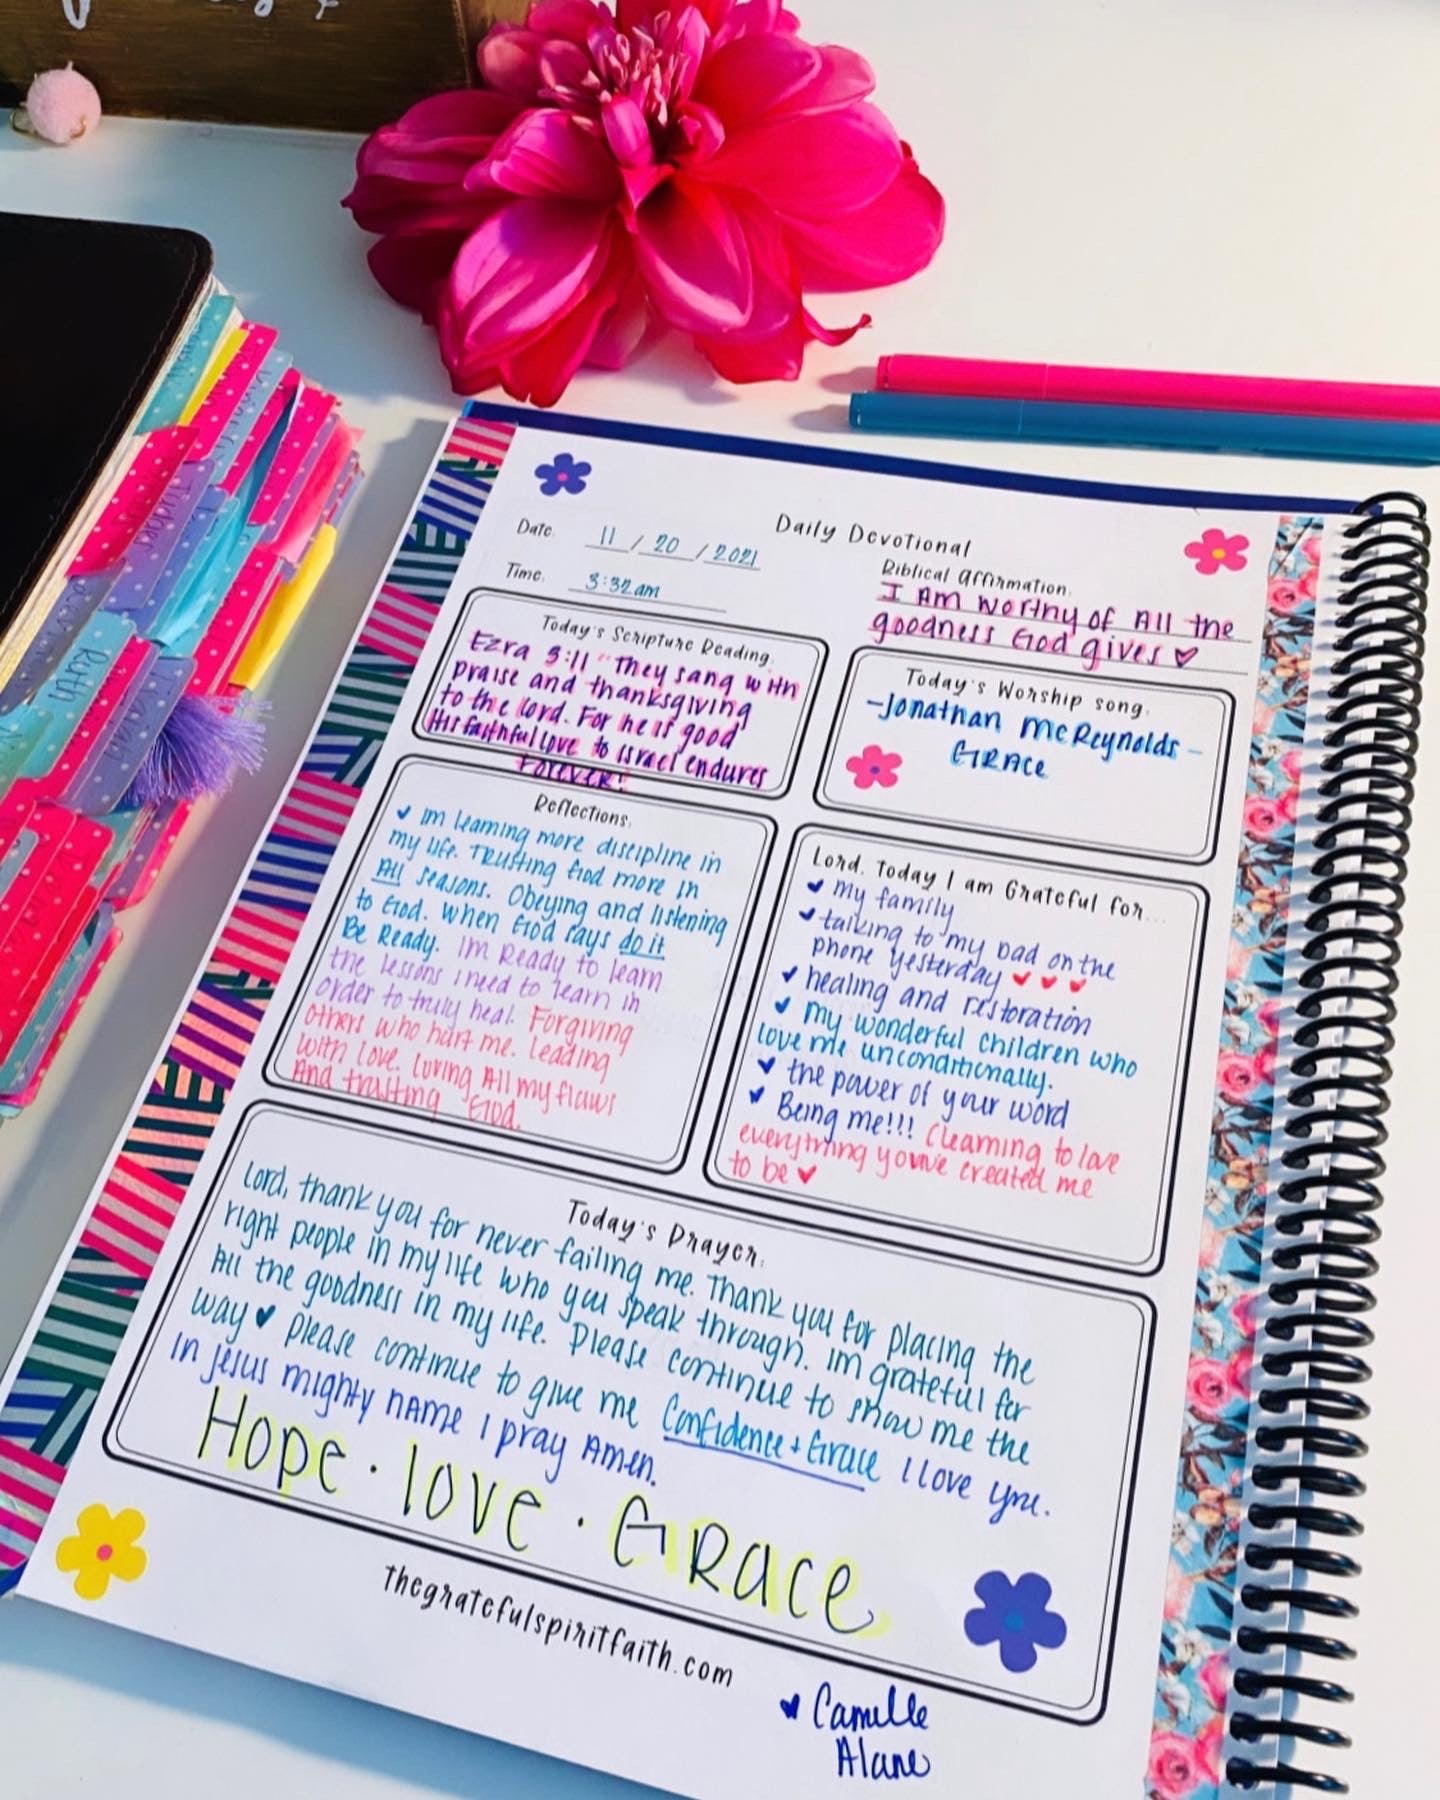 Daily Devotional
Date: 11 / 20 / 2021
Time: 3:32am
Biblical Affirmation:
I AM worthy of All the
goodness God gives
Today's Scripture Reading:
Ezra 3:11 "They sang with
praise and thanksgiving
to the Lord. For he is good
His faithful love to Israel endures
Forever!
Today's Worship song:
-Jonathan McReynolds-
GRACE
Reflections:
Im learning more discipline in
my life. Trusting God more in
All seasons. Obeying and listening
to God. When God says do it
Be Ready. Im Ready to learn
the lessons I need to learn in
order to truly heal. Forgiving
others who hurt me. Leading
with love. Loving All my flaws
And trusting God.
Lord, Today I am Grateful for...
My family
talking to my Dad on the
phone yesterday
healing and restoration
My wonderful children who
love me unconditionally.
the power of your word
Being me!!! (learning to love
everything you've created me
to be
Today's Prayer:
Lord, thank you for never failing me. Thank you for placing the
right people in my life who you speak through. Im grateful for
All the goodness in my life. Please continue to show me the
way please continue to give me Confidence + Grace I love you.
in Jesus mighty name I pray Amen.
Hope · love · GRace
thegratefulspiritfaith.com
Camille
Alane
Judges
Ruth